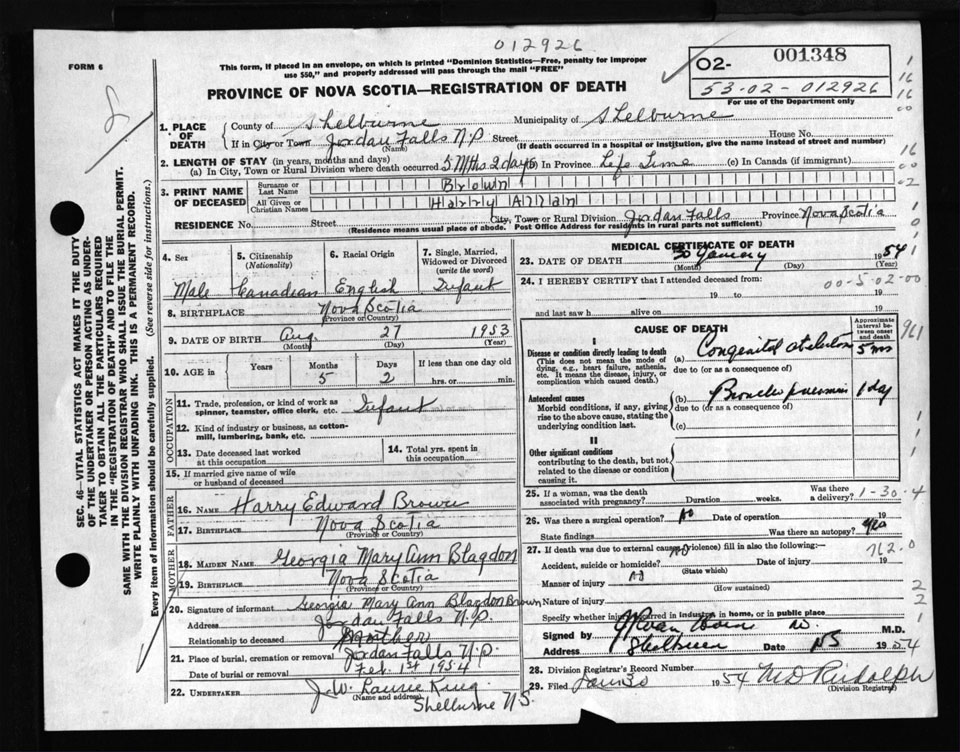 012926
FORM 6
This form, if placed in an envelope, on which is printed "Dominion Statistics—Free, penalty for improper
use $50," and properly addressed will pass through the mail "FREE"
O2- 001348
53-02-012926
For use of the Department only
PROVINCE OF NOVA SCOTIA—REGISTRATION OF DEATH
1. PLACE OF DEATH
County of Shelburne Municipality of Shelburne
If in City or Town Jordan Falls N.S. Street House No.
(Name) (If death occurred in a hospital or institution, give the name instead of street and number)
2. LENGTH OF STAY (in years, months and days)
(a) In City, Town or Rural Division where death occurred 5 Mths 2 days (b) In Province Life Time (c) In Canada (if immigrant)
3. PRINT NAME OF DECEASED
Surname or Last Name Brown
All Given or Christian Names Harry Allan
RESIDENCE No. Street City, Town or Rural Division Jordan Falls Province Nova Scotia
(Residence means usual place of abode. Post Office Address for residents in rural parts not sufficient)
4. Sex Male
5. Citizenship (Nationality) Canadian
6. Racial Origin English
7. Single, Married, Widowed or Divorced (write the word) Infant
8. BIRTHPLACE Nova Scotia
(Province or Country)
9. DATE OF BIRTH Aug. 27 1953
(Month) (Day) (Year)
10. AGE in Years Months 5 Days 2 If less than one day old hrs. or min.
OCCUPATION
11. Trade, profession, or kind of work as spinner, teamster, office clerk, etc. Infant
12. Kind of industry or business, as cotton-mill, lumbering, bank, etc.
13. Date deceased last worked at this occupation
14. Total yrs. spent in this occupation
15. If married give name of wife or husband of deceased
FATHER
16. NAME Harry Edward Brown
17. BIRTHPLACE Nova Scotia
(Province or Country)
MOTHER
18. MAIDEN NAME Georgia Mary Ann Blagdon
19. BIRTHPLACE Nova Scotia
(Province or Country)
20. Signature of informant Georgia Mary Ann Blagdon Brown
Address Jordan Falls N.S.
Relationship to deceased Mother
21. Place of burial, cremation or removal Jordan Falls N.S.
Date of burial or removal Feb. 1st 1954
22. UNDERTAKER J.W. Laurie King
(Name and address)
Shelburne N.S.
MEDICAL CERTIFICATE OF DEATH
23. DATE OF DEATH 30 January 1954
(Month) (Day) (Year)
24. I HEREBY CERTIFY that I attended deceased from
00-5-02-00
19 to 19
and last saw h alive on 19
CAUSE OF DEATH
Approximate interval between onset and death
I
Disease or condition directly leading to death
(This does not mean the mode of dying, e.g., heart failure, asthenia, etc. It means the disease, injury, or complication which caused death.)
(a) Congenital 5 ms
due to (or as a consequence of)
Antecedent causes
Morbid conditions, if any, giving rise to the above cause, stating the underlying condition last.
(b) 1 day
due to (or as a consequence of)
(c)
II
Other significant conditions
contributing to the death, but not related to the disease or condition causing it.
25. If a woman, was the death associated with pregnancy? Duration weeks. Was there a delivery? 1-30-4
26. Was there a surgical operation? No Date of operation 19
State findings Was there an autopsy? Yes
27. If death was due to external causes (violence) fill in also the following:—
No 762.0
Accident, suicide or homicide? Date of injury 19
(State which)
Manner of injury No
(How sustained)
Nature of injury
Specify whether injury occurred in industry, in home, or in public place
Signed by M.D.
Address NS 1954
28. Division Registrar's Record Number
29. Filed Jan 30 1954 M D Rudolph
(Division Registrar)
SEC. 46—VITAL STATISTICS ACT MAKES IT THE DUTY
OF THE UNDERTAKER OR PERSON ACTING AS UNDERTAKER
TO OBTAIN ALL THE PARTICULARS REQUIRED
IN THE "REGISTRATION OF DEATH" AND TO FILE THE
SAME WITH THE DIVISION REGISTRAR WHO SHALL ISSUE THE BURIAL PERMIT.
WRITE PLAINLY WITH UNFADING INK. THIS IS A PERMANENT RECORD.
Every item of information should be carefully supplied. (See reverse side for instructions.)